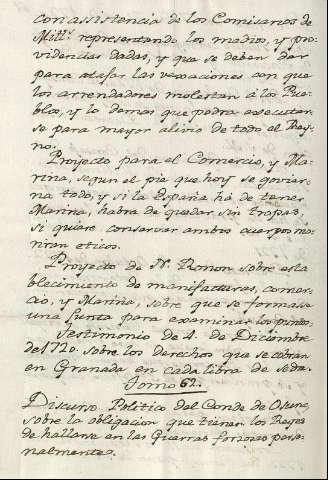 con assistencia de los Comisarios de
Mill.s representando los medios, y pro
videncias dadas, y que se deben dar
para atajar las vexaciones con que
los arrendadores molestan á los Pue
blos, y lo demas que podra executar
se para mayor alivio de todo el Rey
no.
Proyecto para el Comercio, y Ma
rina, segun el pie que hoy se govier
na todo, y si la España há de tener
Marina, habra de quedar sin tropas,
si quiere conservar ambos cuerpos mo
riran eticos.
Proyecto de N. Ronon sobre esta
blecimiento de manifacturas, comer
cio, y Marina, sobre que se formasse
una Junta para examinar los puntos.
Testimonio de 4. de Diciembre
de 1720. sobre los derechos que se cobran
en Granada en cada libra de seda.
Tomo 62.
Discurso Politico del Conde de Osune,
sobre la obligacion que tienen los Reyes
de hallarse en las Guerras forzosas perso
nalmente.